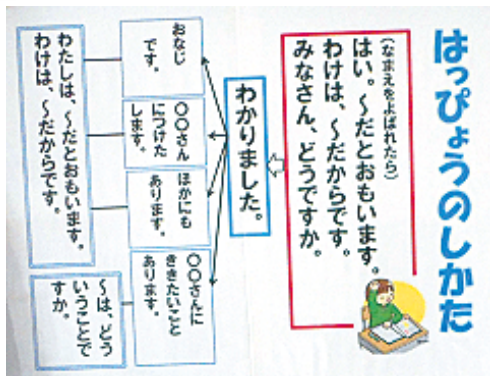 はっぴょうのしかた
(なまえをよばれたら)
はい。～だとおもいます。
わけは、～だからです。
みなさん、どうですか。
わかりました。
おなじ
です。
〇〇さん
につけた
します。
ほかにも
あります。
〇〇さんに
ききたいこと
あります。
わたしは、～だとおもいます。
わけは、～だからです。
～は、どう
いうことで
すか。